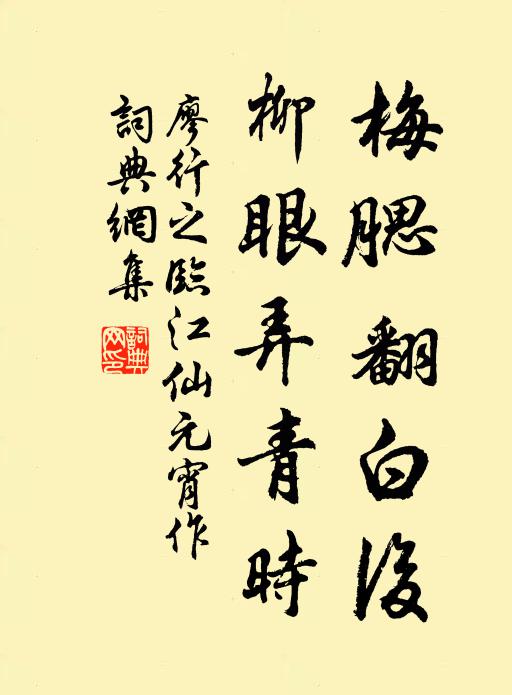 梅腮翻白後
柳眼弄青時
廖行之臨江仙元宵作
詞典網集
詞典網印